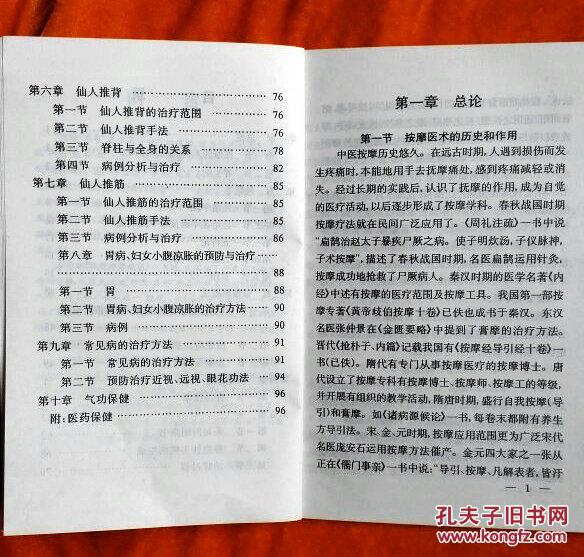 第六章 仙人推背 ………………… 76
第一节 仙人推背的治疗范围 ………… 76
第二节 仙人推背手法 ………… 76
第三节 脊柱与全身的关系 ………… 78
第四节 病例分析与治疗 ………… 82
第七章 仙人推筋 ………………… 85
第一节 仙人推筋的治疗范围 ………… 85
第二节 仙人推筋手法 ………… 85
第三节 病例分析与治疗 ………… 86
第八章 胃病、妇女小腹凉胀的预防与治疗 ……
………………… 88
第一节 胃 ………………… 88
第二节 胃病、妇女小腹凉胀的治疗方法 …… 90
第三节 病例 ………………… 90
第九章 常见病的治疗方法 ………… 91
第一节 常见病的治疗方法 ………… 91
第二节 预防治疗近视、远视、眼花功法 …… 94
第十章 气功保健 ………………… 96
附:医药保健 ………………… 96
第一章 总论
第一节 按摩医术的历史和作用
中医按摩历史悠久。在远古时期,人遇到损伤而发
生疼痛时,本能地用手去抚摩痛处,感到疼痛减轻或消
失。经过长期的实践后,认识了抚摩的作用,成为自觉
的医疗活动,以后逐步形成了按摩学科。春秋战国时期
按摩疗法就在民间广泛应用了。《周礼注疏》一书中说
“扁鹊治赵太子暴疾尸厥之病。使子明炊汤,子仪脉神,
子术按摩”,描述了春秋战国时期,名医扁鹊运用针灸、
按摩成功地抢救了尸厥病人。秦汉时期的医学名著《内
经》中述有按摩的医疗范围及按摩工具。我国第一部按
摩专著《黄帝歧伯按摩十卷》已佚也成书于秦汉。东汉
名医张仲景在《金匮要略》中提到了膏摩的治疗方法。
晋代《抢朴子、内篇》记载我国有《按摩经导引经十卷》一
书(已佚)。隋代有专门从事按摩医疗的按摩博士。唐
代设立了按摩专科有按摩博士、按摩师、按摩工的等级,
并开展有组织的教学活动,隋唐时期,盛行自我按摩(导
引)和膏摩。如《诸病源候论》一书,每卷末都附有养生
方导引法。宋、金、元时期,按摩应用范围更为广泛宋代
名医庞安石运用按摩方法催产。金元四大家之一张从
正在《儒门事亲》一书中说:“导引、按摩、凡解表者,皆汗
— 1 —
孔夫子旧书网